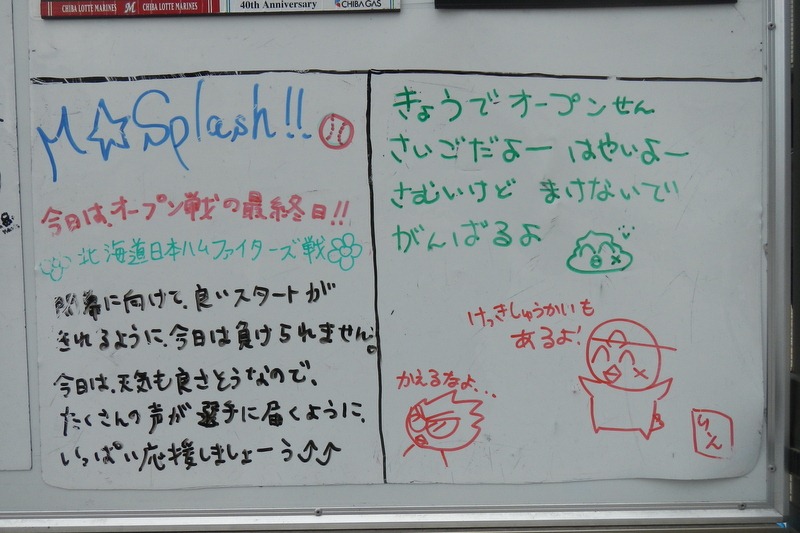 CHIBA LOTTE MARINES
CHIBA LOTTE MARINES
40th Anniversary
CHIBA GAS
M☆Splash!!
今日は、オープン戦の最終日!!
北海道日本ハムファイターズ戦
開幕に向けて、良いスタートが
きれるように、今日は負けられません。
今日は、天気も良さそうなので、
たくさんの声が選手に届くように、
いっぱい応援しましょーう⤴⤴
きょうでオープンせん
さいごだよー はやいよー
さむいけど まけないで
がんばるよ
けっきしゅうかいも
あるよ!
かえるなよ...
りん